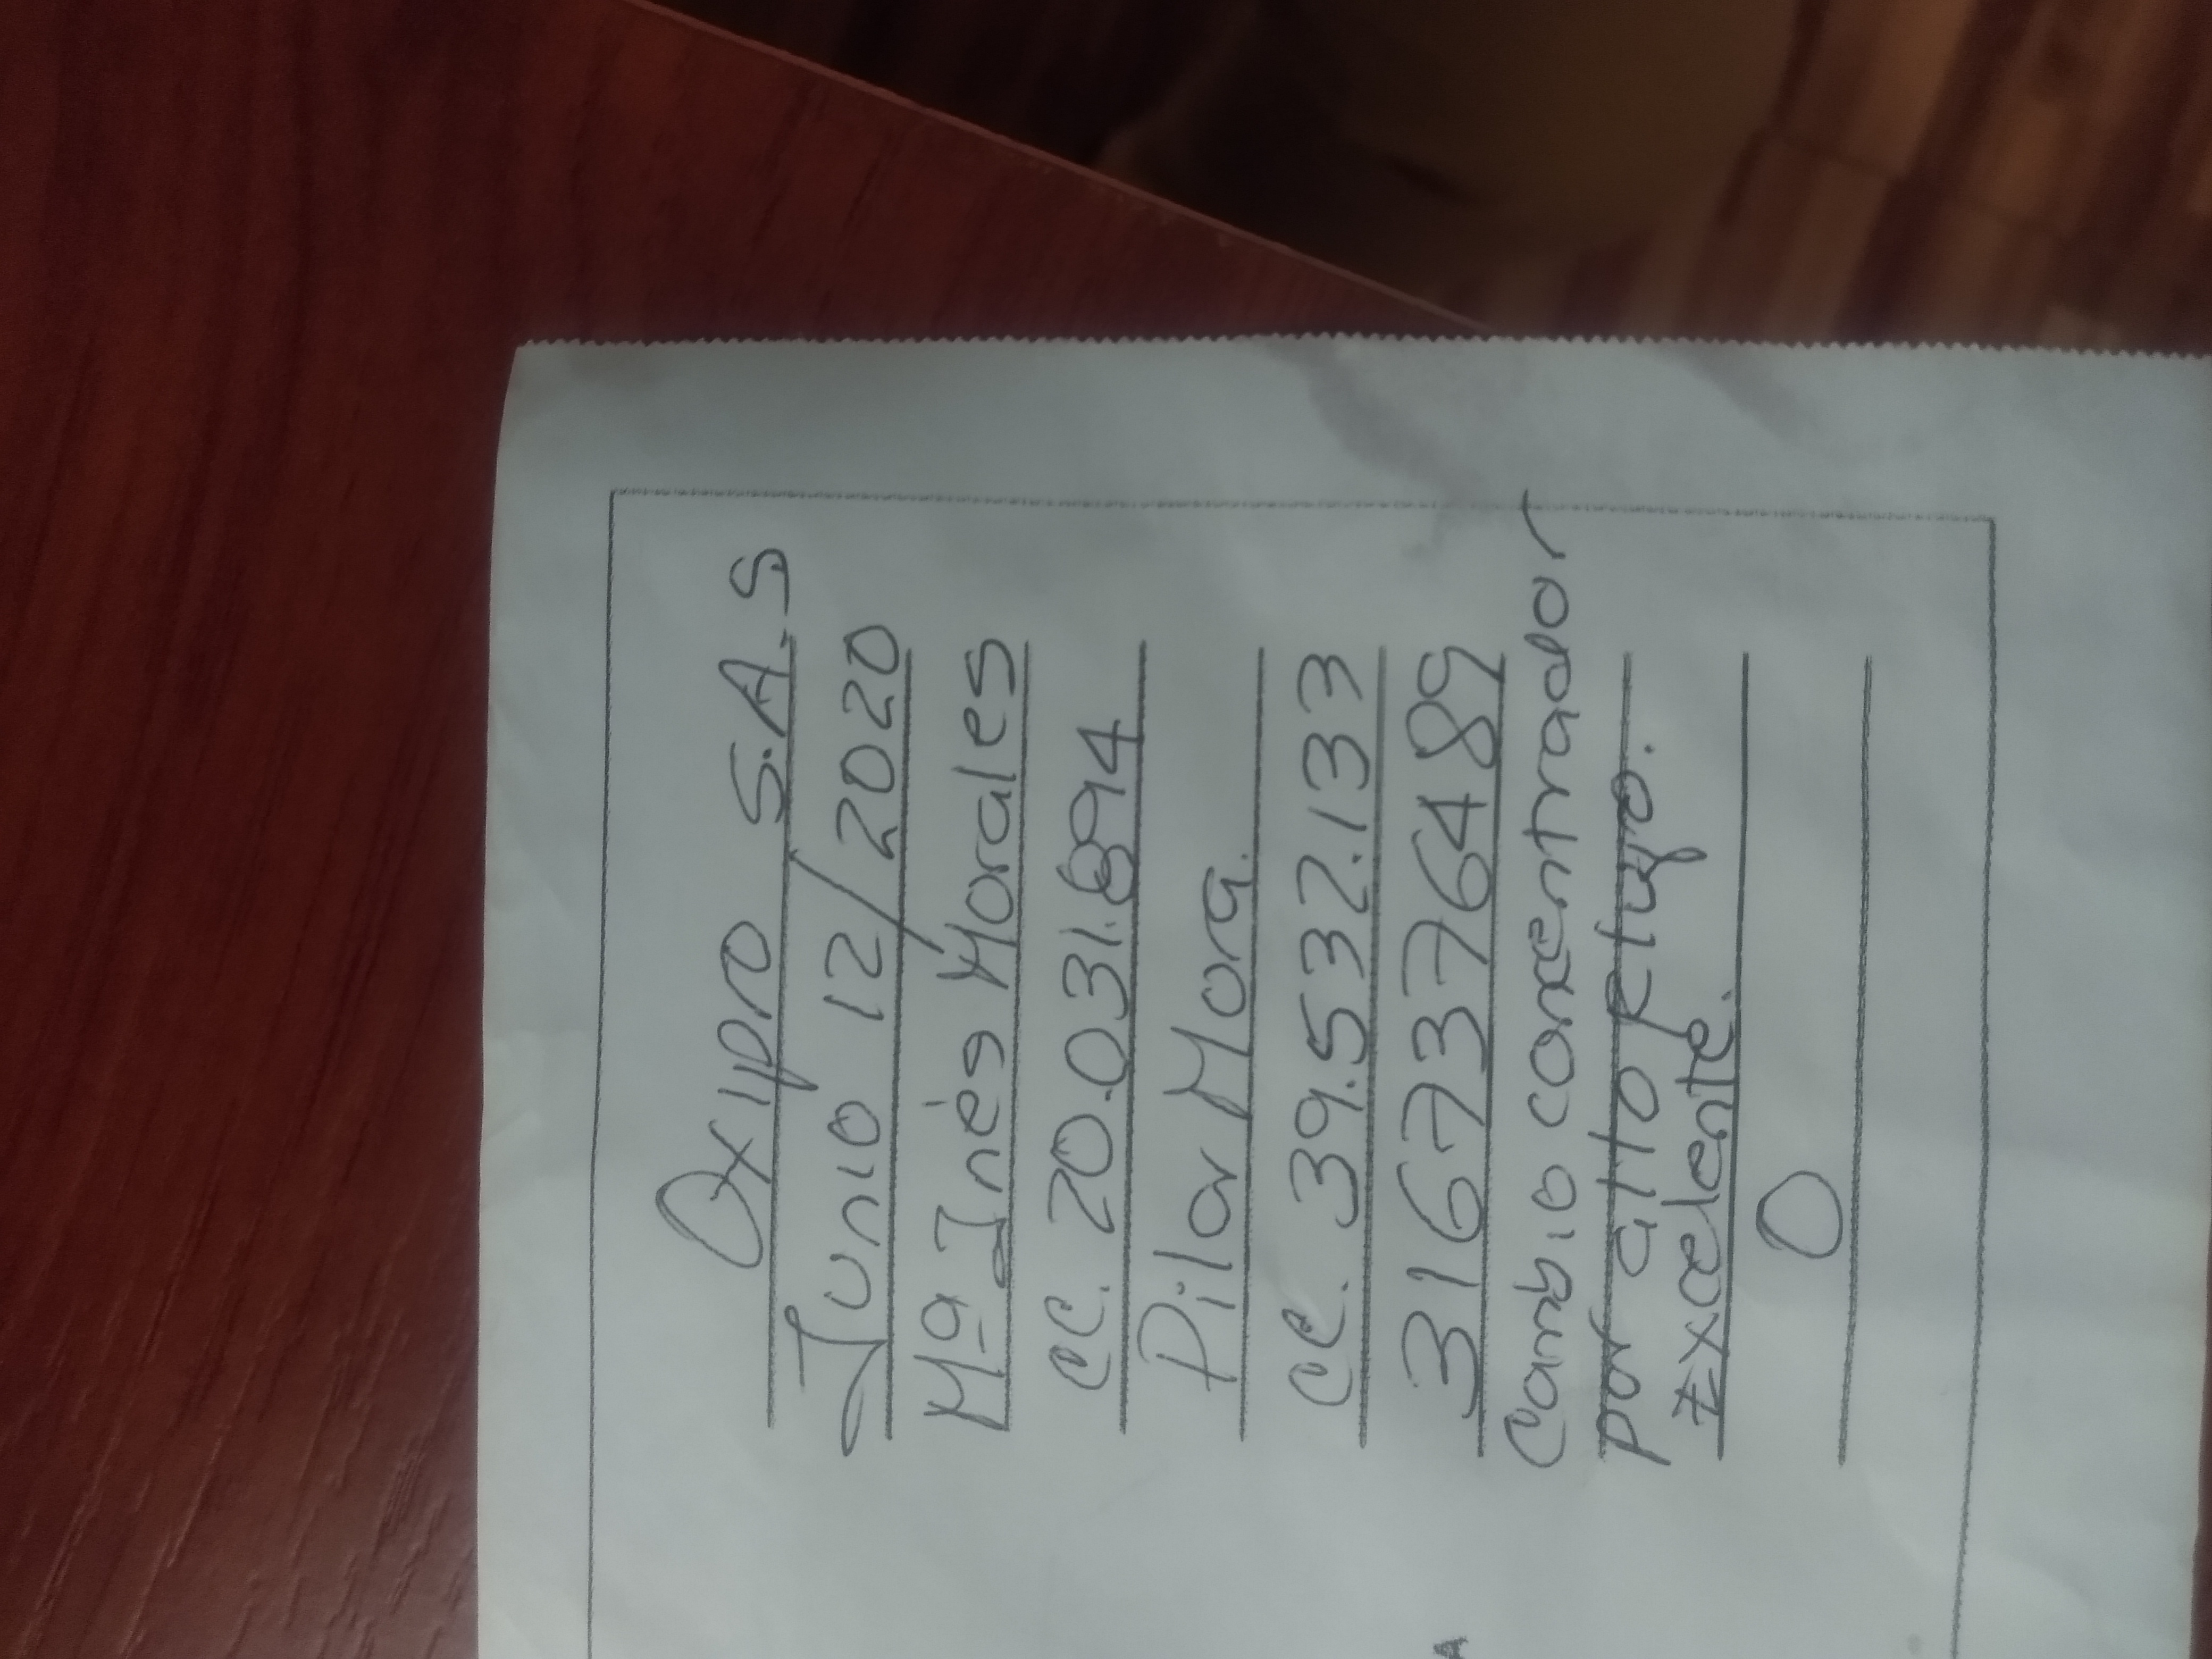 Oxipro S.A.S
Junio 12/2020
Mª Inés Morales
CC. 20.031.894
Pilar Mora.
CC. 39.532.133
3167376489
Cambio concentrador
por alto flujo.
Exelente.
O
A